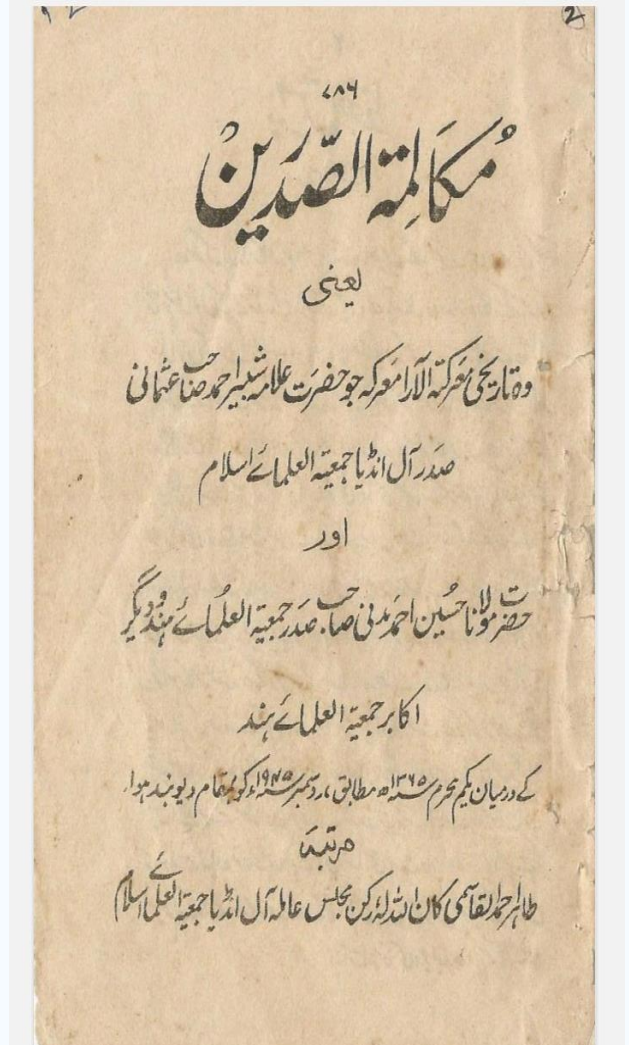 2
۷۸۶
مُکَالِمَۃ الصَّدرَین
یعنی
وہ تاریخی معرکۃ الآرا معرکہ جو حضرت علامہ شبیر احمد صاحب عثمانی
صدر آل انڈیا جمعیۃ العلمائے اسلام
اور
حضرت مولانا حسین احمد مدنی صاحب صدر جمعیۃ العلمائے ہند و دیگر
اکابر جمعیۃ العلمائے ہند
کے درمیان یکم محرم سنہ ۱۳۶۵ھ مطابق ۷ دسمبر سنہ ۱۹۴۵ء کو بمقام دیوبند ہوا۔
مرتبہ
طاہر احمد القاسمی کان اللہ لہٗ رکن مجلس عاملہ آل انڈیا جمعیۃ العلمائے اسلام